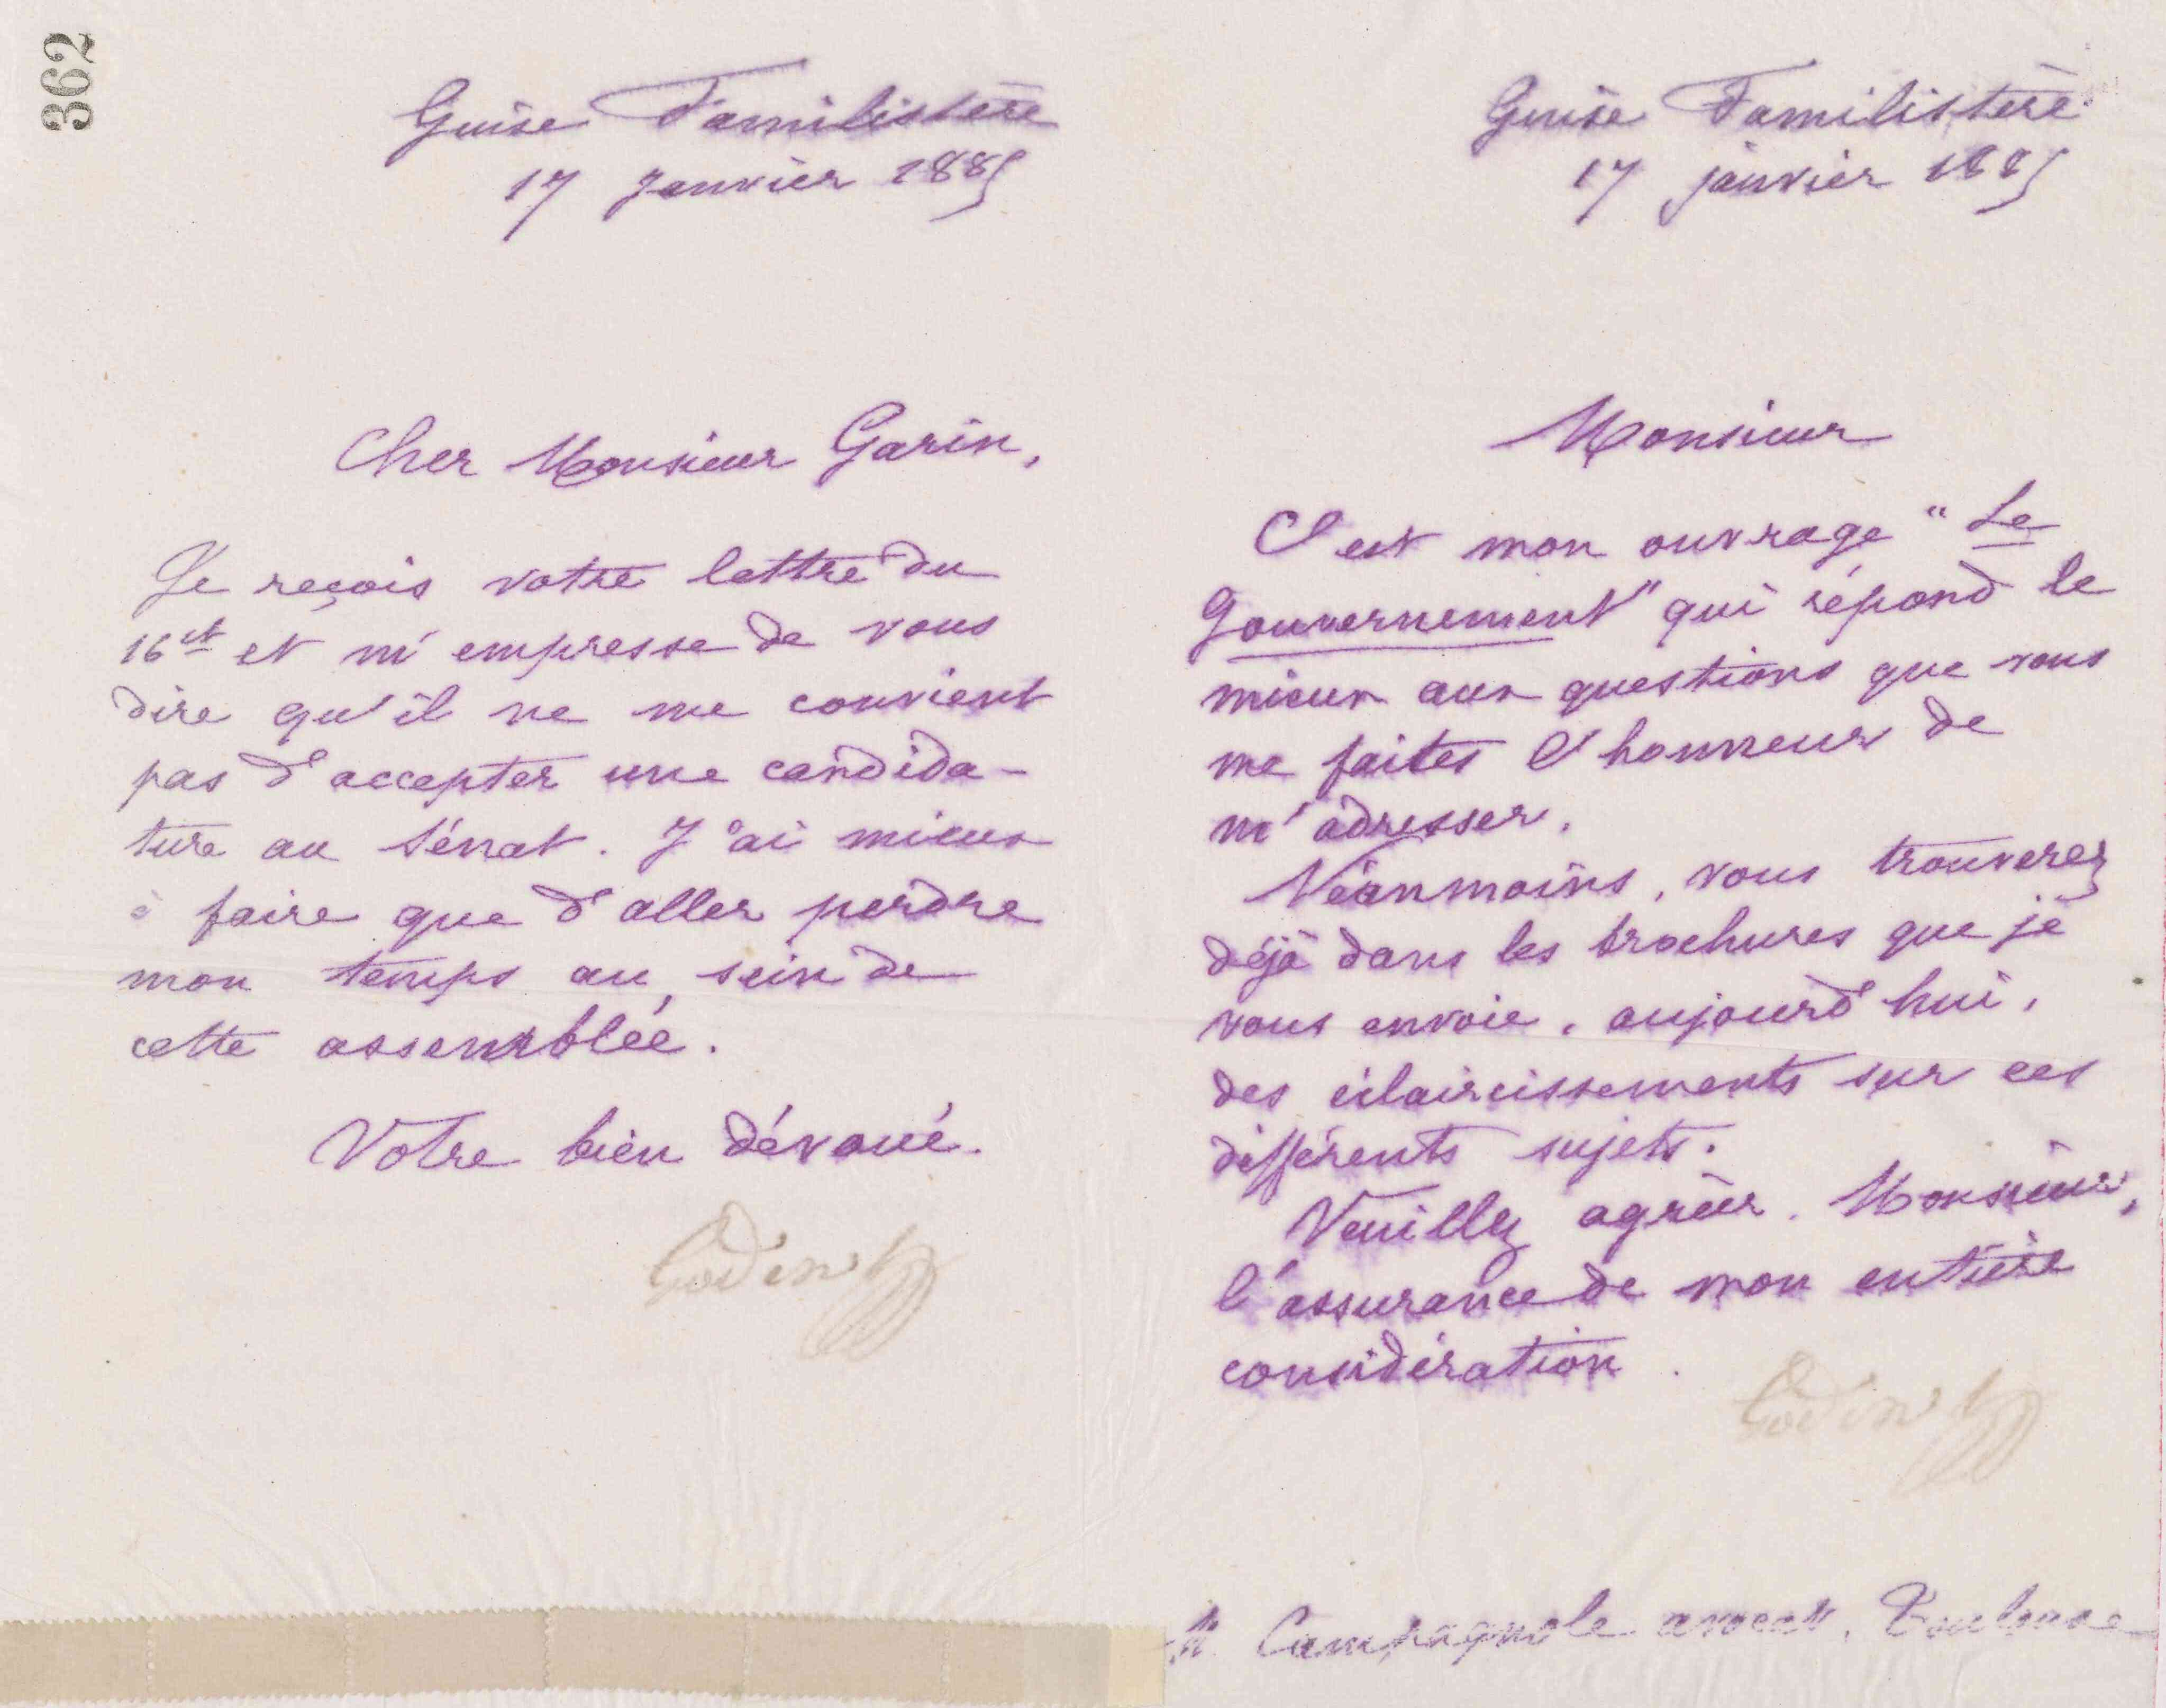 362
Guise Familistère
17 Janvier 1885
Cher Monsieur Garin,
Je reçois votre lettre du
16 ct et m'empresse de vous
dire qu'il ne me convient
pas d'accepter une candida-
ture au Sénat. J'ai mieux
à faire que d'aller perdre
mon temps au sein de
cette assemblée.
Votre bien dévoué.
Godin
Guise Familistère
17 janvier 1885
Monsieur
C'est mon ouvrage "Le
Gouvernement" qui répond le
mieux aux questions que vous
me faites l'honneur de
m'adresser.
Néanmoins, vous trouverez
déjà dans les brochures que je
vous envoie, aujourd'hui,
des éclaircissements sur ces
différents sujets.
Veuillez agréer, Monsieur,
l'assurance de mon entière
considération.
Godin
M. Campagnole avocat, Toulouse